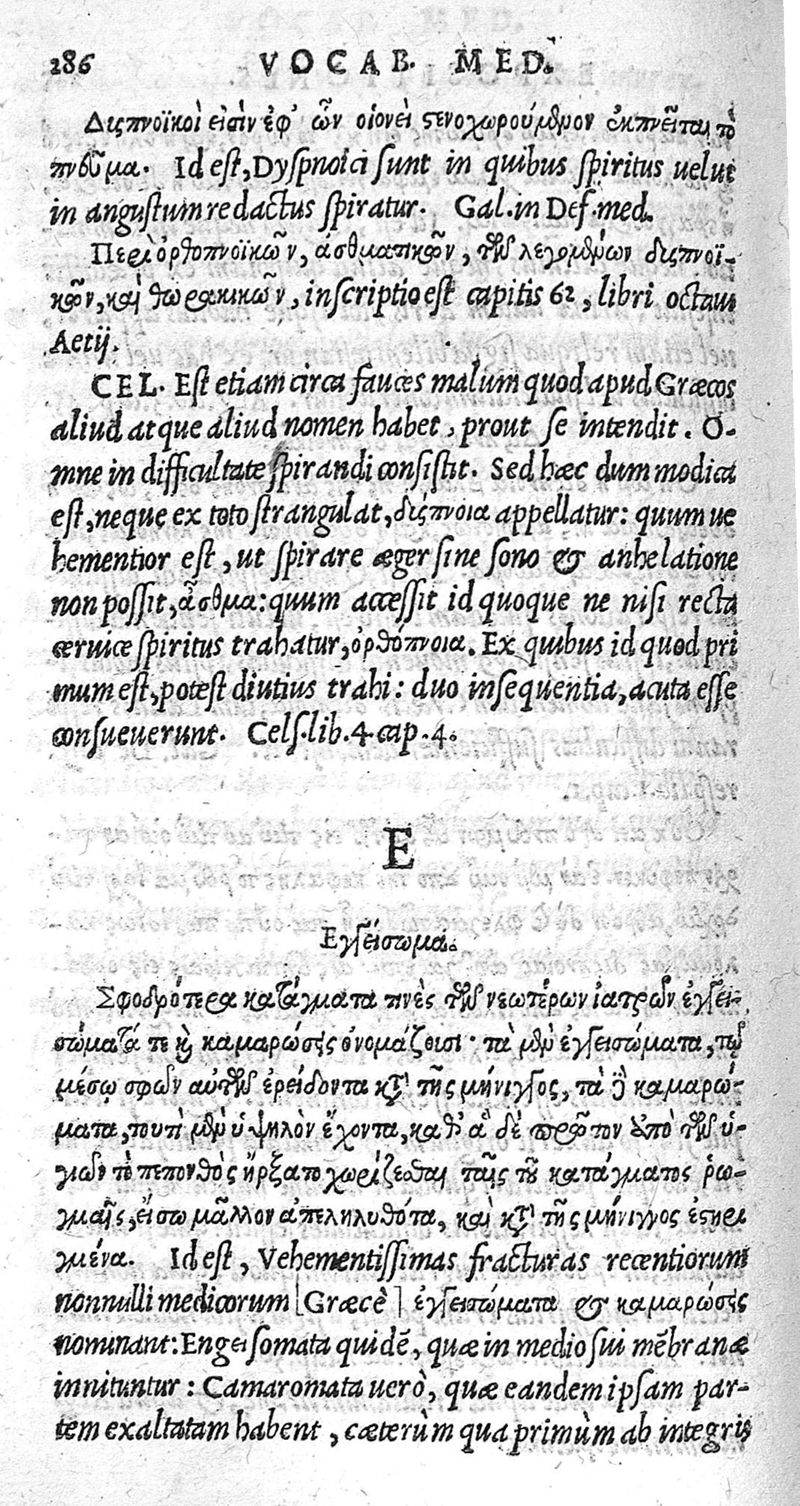 286 VOCAB. MED.
Δισπνοϊκοὶ εἰσὶν ἐφ' ὧν οἱονεὶ στενοχωρούμενον ἐκπνεῖται τὸ
πνεῦμα. Id est, Dyspnoici sunt in quibus spiritus uelut
in angustum redactus spiratur. Gal. in Def. med.
Περὶ ὀρθοπνοϊκῶν, ἀσθματικῶν, τῶν λεγομένων δισπνοϊ-
κῶν, καὶ θωρακικῶν, inscriptio est capitis 62, libri octaui
Aetij.
CEL. Est etiam circa fauces malum quod apud Græcos
aliud atque aliud nomen habet, prout se intendit. O-
mne in difficultate spirandi consistit. Sed hæc dum modica
est, neque ex toto strangulat, δίσπνοια appellatur: quum ue
hementior est, ut spirare æger sine sono & anhelatione
non possit, ἆσθμα: quum accessit id quoque ne nisi recta
ceruice spiritus trahatur, ὀρθόπνοια. Ex quibus id quod pri
mum est, potest diutius trahi: duo insequentia, acuta esse
consueuerunt. Cels. lib. 4. cap. 4.
E
Εγγείσωμα.
Σφοδρότερα κατάγματα τινὲς τῶν νεωτέρων ἰατρῶν ἐγγει-
σώματά τε καὶ καμαρώσεις ὀνομάζουσι· τὰ μὲν ἐγγεισώματα, τῷ
μέσῳ σφῶν αὐτῶν ἐρείδοντα κατὰ τῆς μήνιγγος, τὰ δὲ καμαρώ-
ματα, τουτὶ μὲν ὑψηλὸν ἔχοντα, καθ' ἃ δὲ πρῶτον ἀπὸ τῶν ὑ-
γιῶν τὸ πεπονθὸς ἤρξατο χωρίζεσθαι ταῖς τοῦ κατάγματος ῥω-
γμαῖς, εἴσω μᾶλλον ἀπεληλυθότα, καὶ κατὰ τῆς μήνιγγος ἐστηρι
γμένα. Id est, Vehementissimas fracturas recentiorum
nonnulli medicorum [Græcè] ἐγγεισώματα & καμαρώσεις
nominant: Engeisomata quidē, quæ in medio sui mēbranæ
innituntur: Camaromata uerò, quæ eandem ipsam par-
tem exaltatam habent, cæterùm qua primùm ab integris